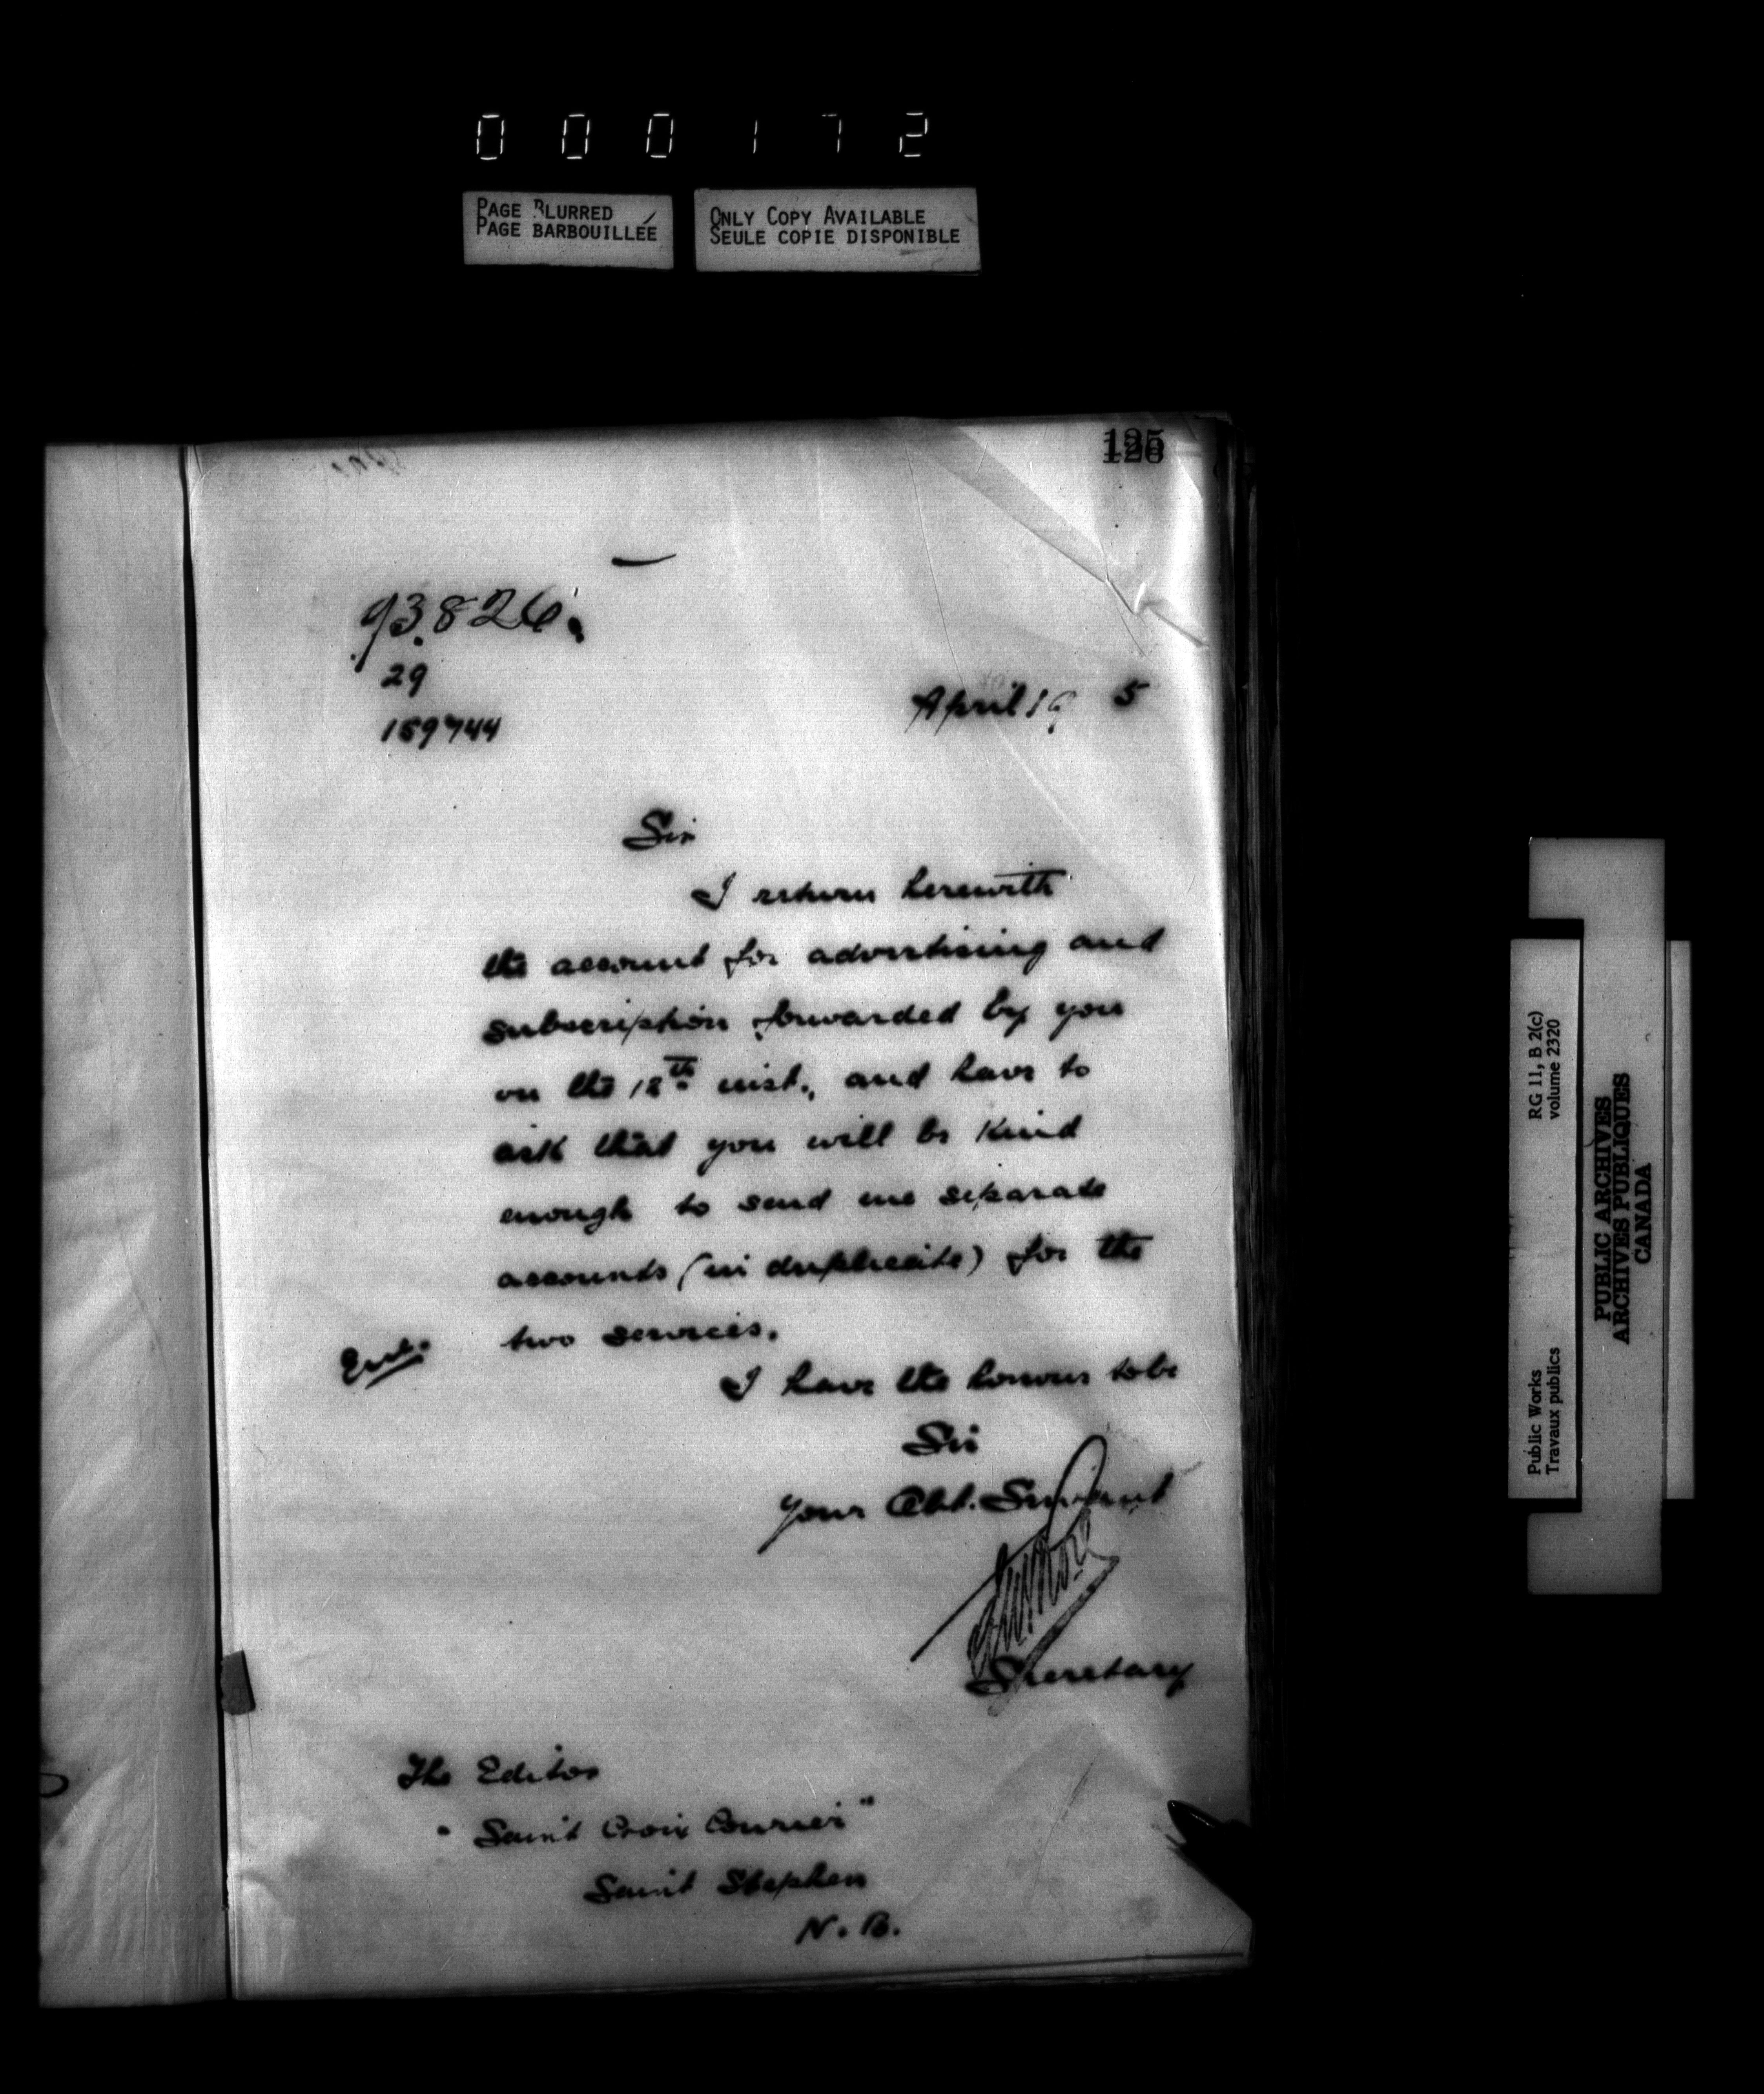 000172
PAGE BLURRED
PAGE BARBOUILLÉE
ONLY COPY AVAILABLE
SEULE COPIE DISPONIBLE
93.826.
29
159744
April 19 5
Sir
I return herewith
the account for advertising and
subscription forwarded by you
on the 12th inst., and have to
ask that you will be Kind
enough to send me separate
accounts (in duplicate) for the
two services.
Encl.
I have the honour to be
Sir
Your Obt. Servant
Secretary
The Editor
"Saint Croix Courier"
Saint Stephen
N. B.
RG 11, B 2(c)
volume 2320
Public Works
Travaux publics
PUBLIC ARCHIVES
ARCHIVES PUBLIQUES
CANADA